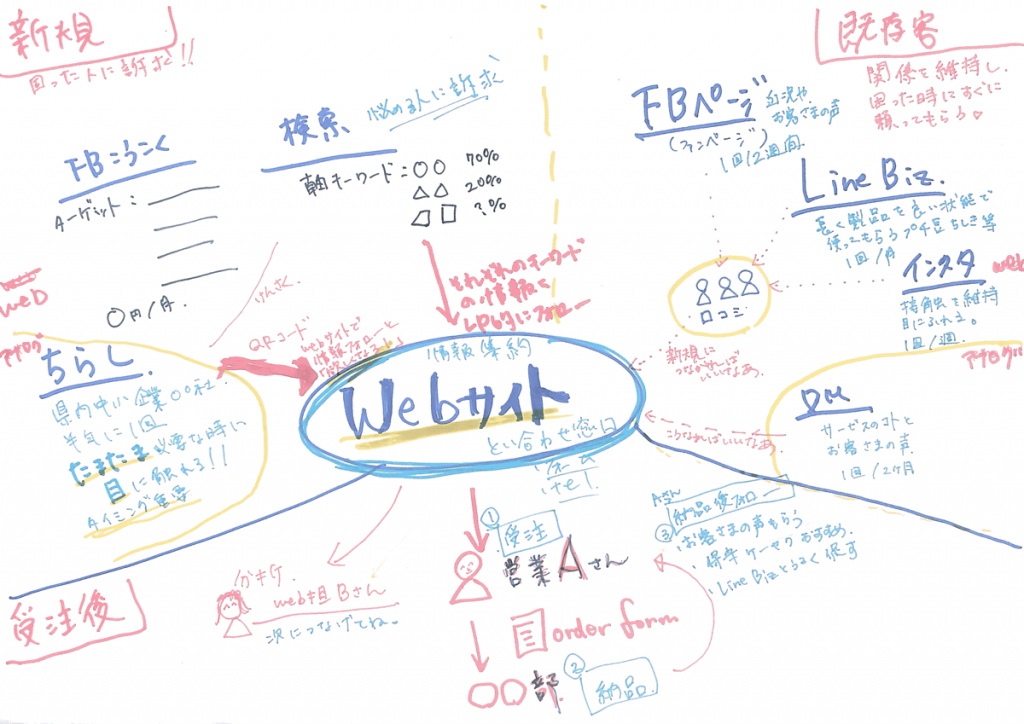 新規
困った人に訴求!!
FBこうこく
Aーゲット:
〇円/月.
検索
悩める人に訴求
軸キーワード:〇〇 70%
△△ 20%
?%
それぞれのキーワード
の情報を
LP的にフォロー
けんさく
web
アナログ
ちらし
県内中小企業〇〇社
半年に1回
たまたま必要な時に
目に触れる!!
タイミング重要
QRコード
webサイトで
情報フォローと
情報集約
Webサイト
とい合わせ窓口
tel.
既存客
関係を維持し.
困った時にすぐに
頼ってもらう♡
FBページ
(ファンページ)
近況や
お客さまの声
1回/2週間.
Line Biz.
長く製品を良い状態で
使ってもらうプチ豆ちしき等
1回/月
インスタ
web
接触を維持
目にふれる。
1回/週.
口コミ
新規に
つながればいいなあ.
こうなればいいなあ.
アナログ
DM
サービスのコトと
お客さまの声.
1回/2ヶ月
受注後
分析.
web担Bさん
次につなげてね。
① 受注
営業Aさん
order form
〇〇部.
② 納品.
Aさん
③ 納品後フォロー
・お客さまの声もらう
・Line Bizとうろく促す